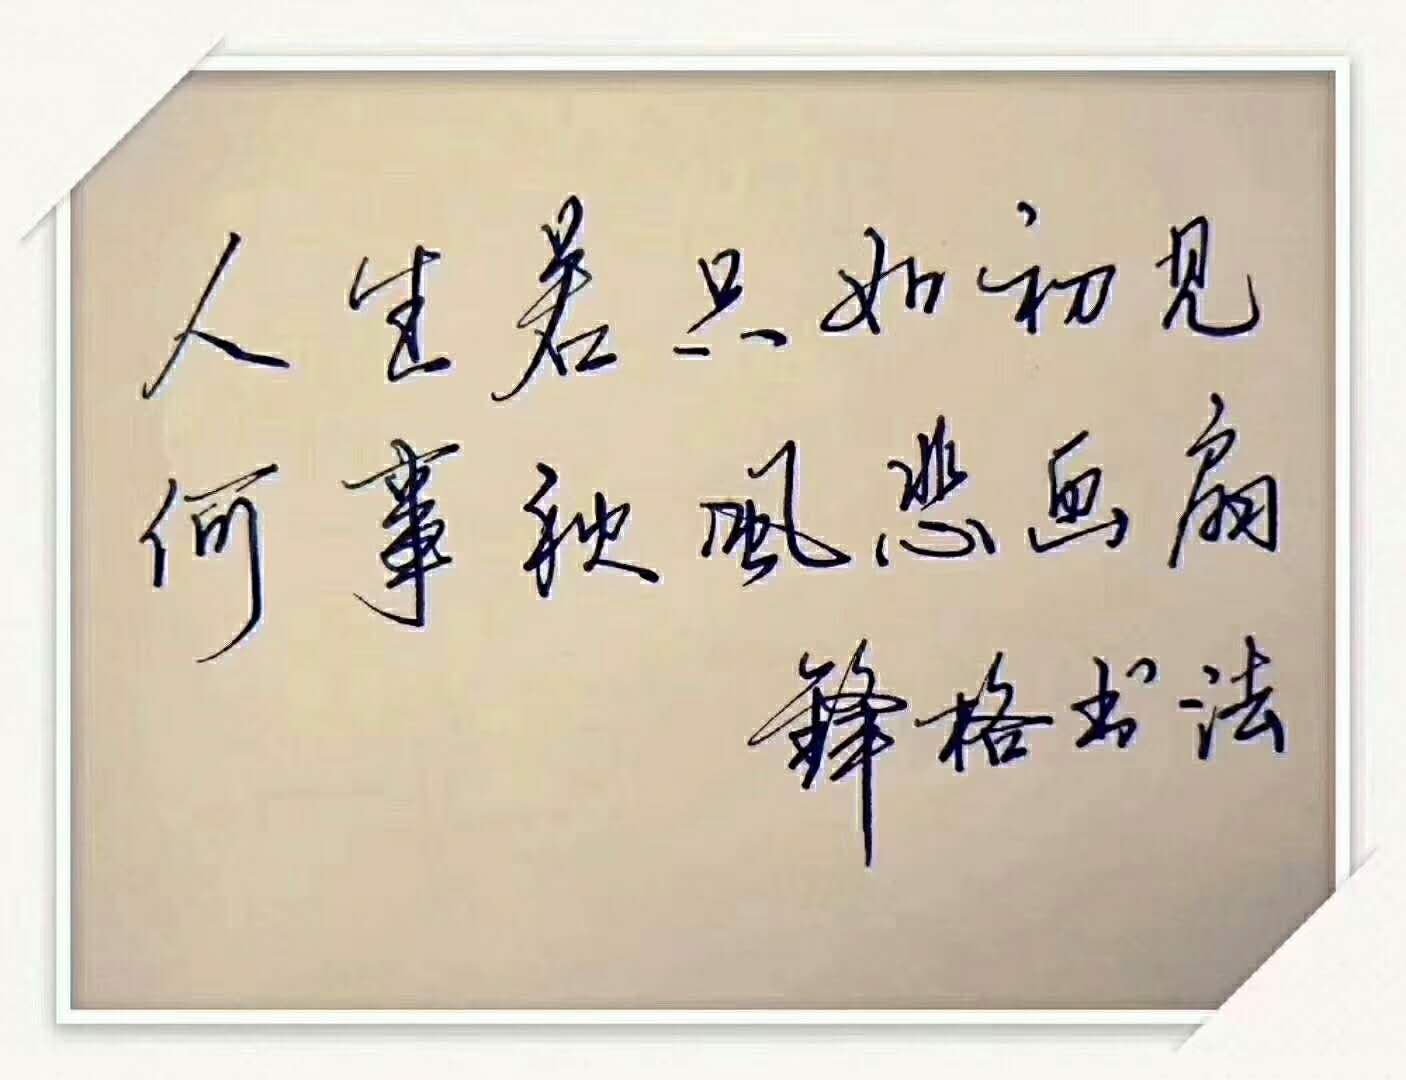 人生若只如初见
何事秋風悲画扇
鋒格书法